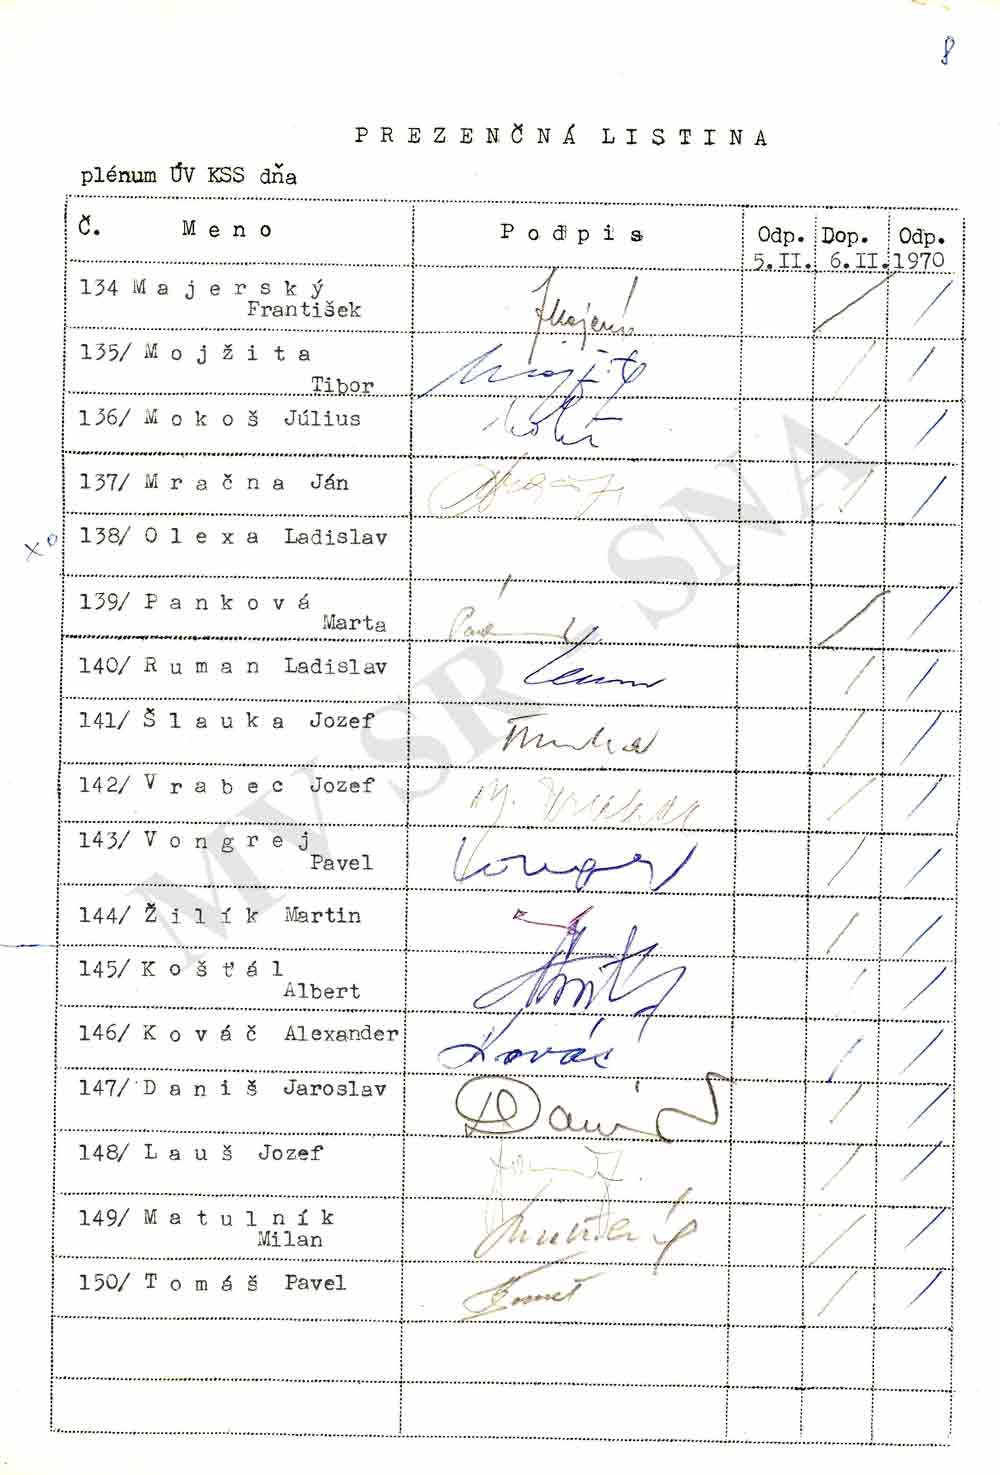 8
PREZENČNÁ LISTINA
plénum ÚV KSS dňa
Č. Meno Podpis Odp. Dop. Odp.
5.II. 6.II.1970
134 Majerský
František
135/ Mojžita
Tibor
136/ Mokoš Július
137/ Mračna Ján
xo 138/ Olexa Ladislav
139/ Panková
Marta
140/ Ruman Ladislav
141/ Šlauka Jozef
142/ Vrabec Jozef
143/ Vongrej
Pavel
144/ Žilík Martin
145/ Košťál
Albert
146/ Kováč Alexander Kováč
147/ Daniš Jaroslav
148/ Lauš Jozef
149/ Matulník
Milan
150/ Tomáš Pavel
MV SR - SNA